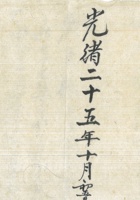 光緒二十五年十月